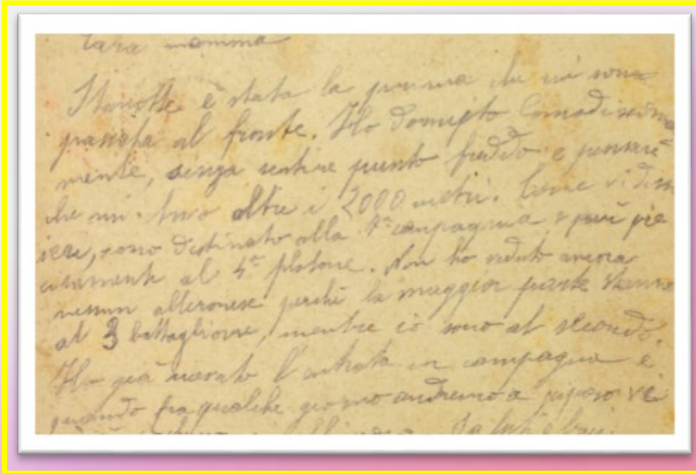 Cara mamma
Stanotte è stata la prima che mi sono
passata al fronte. Ho dormito comodissima
mente, senza sentire punto freddo e pensare
che mi trovo oltre i 2000 metri. Come vi dissi
ieri, sono destinato alla compagnia e più pre
cisamente al 4° plotone. Non ho veduto ancora
nessun perchè la maggior parte stanno
al 3 battaglione, mentre io sono al secondo.
Ho già l'entrata in campagna e
quando fra qualche giorno andremo a riposo ve
Saluti e baci